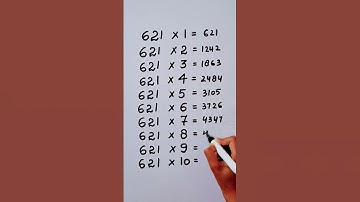 621 × 1 = 621
621 × 2 = 1242
621 × 3 = 1863
621 × 4 = 2484
621 × 5 = 3105
621 × 6 = 3726
621 × 7 = 4347
621 × 8 = 4
621 × 9 =
621 × 10 =